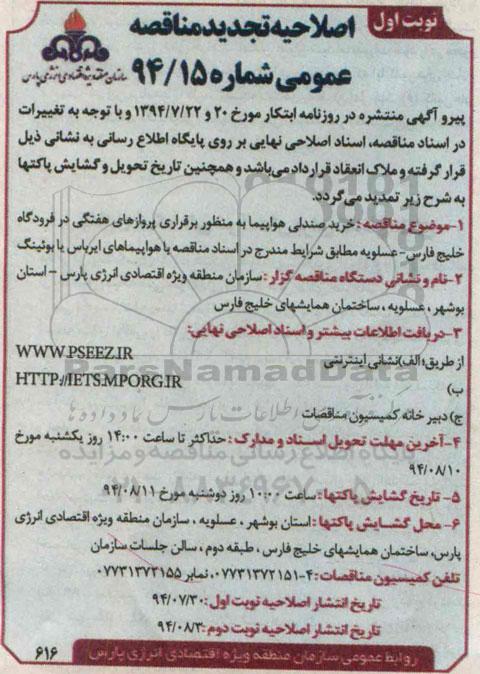 نوبت اول
اصلاحیه تجدید مناقصه
عمومی شماره ۹۴/۱۵
سازمان منطقه ویژه اقتصادی انرژی پارس
پیرو آگهی منتشره در روزنامه ابتکار مورخ ۲۰ و ۱۳۹۴/۷/۲۲ و با توجه به تغییرات
در اسناد مناقصه، اسناد اصلاحی نهایی بر روی پایگاه اطلاع رسانی به نشانی ذیل
قرار گرفته و ملاک انعقاد قرارداد می‌باشد و همچنین تاریخ تحویل و گشایش پاکتها
به شرح زیر تمدید می‌گردد.
۱-موضوع مناقصه: خرید صندلی هواپیما به منظور برقراری پروازهای هفتگی در فرودگاه
خلیج فارس- عسلویه مطابق شرایط مندرج در اسناد مناقصه با هواپیماهای ایرباس یا بوئینگ
۲-نام و نشانی دستگاه مناقصه گزار: سازمان منطقه ویژه اقتصادی انرژی پارس - استان
بوشهر، عسلویه، ساختمان همایشهای خلیج فارس
۳-دریافت اطلاعات بیشتر و اسناد اصلاحی نهایی:
از طریق: الف) نشانی اینترنتی WWW.PSEEZ.IR
ب) HTTP://IETS.MPORG.IR
ج) دبیر خانه کمیسیون مناقصات
۴-آخرین مهلت تحویل اسناد و مدارک: حداکثر تا ساعت ۱۴:۰۰ روز یکشنبه مورخ
۹۴/۰۸/۱۰
۵- تاریخ گشایش پاکتها: ساعت ۱۰:۰۰ روز دوشنبه مورخ ۹۴/۰۸/۱۱
۶- محل گشایش پاکتها: استان بوشهر، عسلویه، سازمان منطقه ویژه اقتصادی انرژی
پارس، ساختمان همایشهای خلیج فارس، طبقه دوم، سالن جلسات سازمان
تلفن کمیسیون مناقصات: ۴-۰۷۷۳۱۳۷۲۱۵۱، نمابر ۰۷۷۳۱۳۷۲۱۵۵
تاریخ انتشار اصلاحیه نوبت اول: ۹۴/۰۷/۳۰
تاریخ انتشار اصلاحیه نوبت دوم: ۹۴/۰۸/۳
روابط عمومی سازمان منطقه ویژه اقتصادی انرژی پارس
۶۱۶
ParsNamadData
پایگاه اطلاع رسانی مناقصه و مزایده